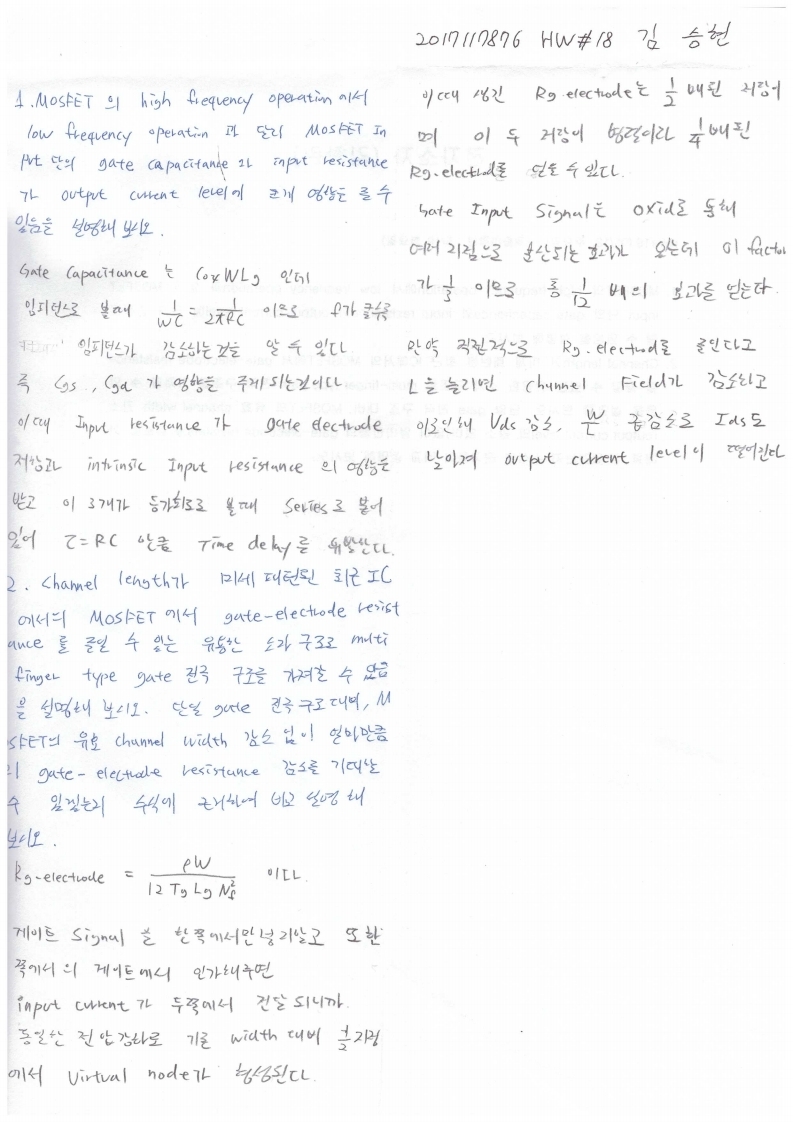 2017117876 HW#18 김 승현
1. MOSFET 의 high frequency operation 에서
low frequency operation 과 달리 MOSFET In
put 단의 gate capacitance 와 input resistance
가 output current level에 크게 영향을 줄 수
있음을 설명해 보시오.
Gate Capacitance 는 CoxWLg 인데
임피던스로 볼때 1/WC = 1/2πfC 이므로 f가 클수록
임피던스가 감소하는것을 알 수 있다.
즉 Cgs, Cgd 가 영향을 주게 되는것이다
이때 Input resistance 가 gate electrode
저항과 intrinsic Input resistance 의 영향을
받고 이 3개가 등가회로로 볼때 Series로 붙어
있어 τ=RC 만큼 Time delay를 유발한다.
2. Channel length가 미세 패턴된 최근 IC
에서의 MOSFET 에서 gate-electrode resist
ance 를 줄일 수 있는 유용한 소자 구조로 multi
finger type gate 전극 구조를 가져갈 수 있음
을 설명해 보시오. 단일 gate 전극 구조 대비, M
SFET의 유효 channel width 감소 없이 얼마만큼
의 gate-electrode resistance 감소를 기대할
수 있겠는지 수식에 근거하여 비교 설명 해
보시오.
Rg-electrode = ρW / 12 Tg Lg Nf² 이다.
게이트 Signal 을 한쪽에서만 넣지말고 또한
쪽에서의 게이트에서 인가해주면
input current 가 두쪽에서 전달 되니까.
동일한 전압강하로 기존 width 대비 1/2 지점
에서 Virtual node가 형성된다.
이때 생긴 Rg-electrode는 1/2 배된 저항이
며 이 두 저항이 병렬이라 1/4 배된
Rg-electrod를 얻을 수 있다.
Gate Input Signal은 oxid로 통해
여러 지점으로 분산되는 효과가 오는데 이 factor
가 1/3 이므로 총 1/12 배의 효과를 얻는다.
만약 직접적으로 Rg-electrod를 줄인다고
L을 늘리면 channel Field가 감소하고
이로인해 Vds 감소, W/L 감소로 Ids도
낮아져 output current level이 떨어진다